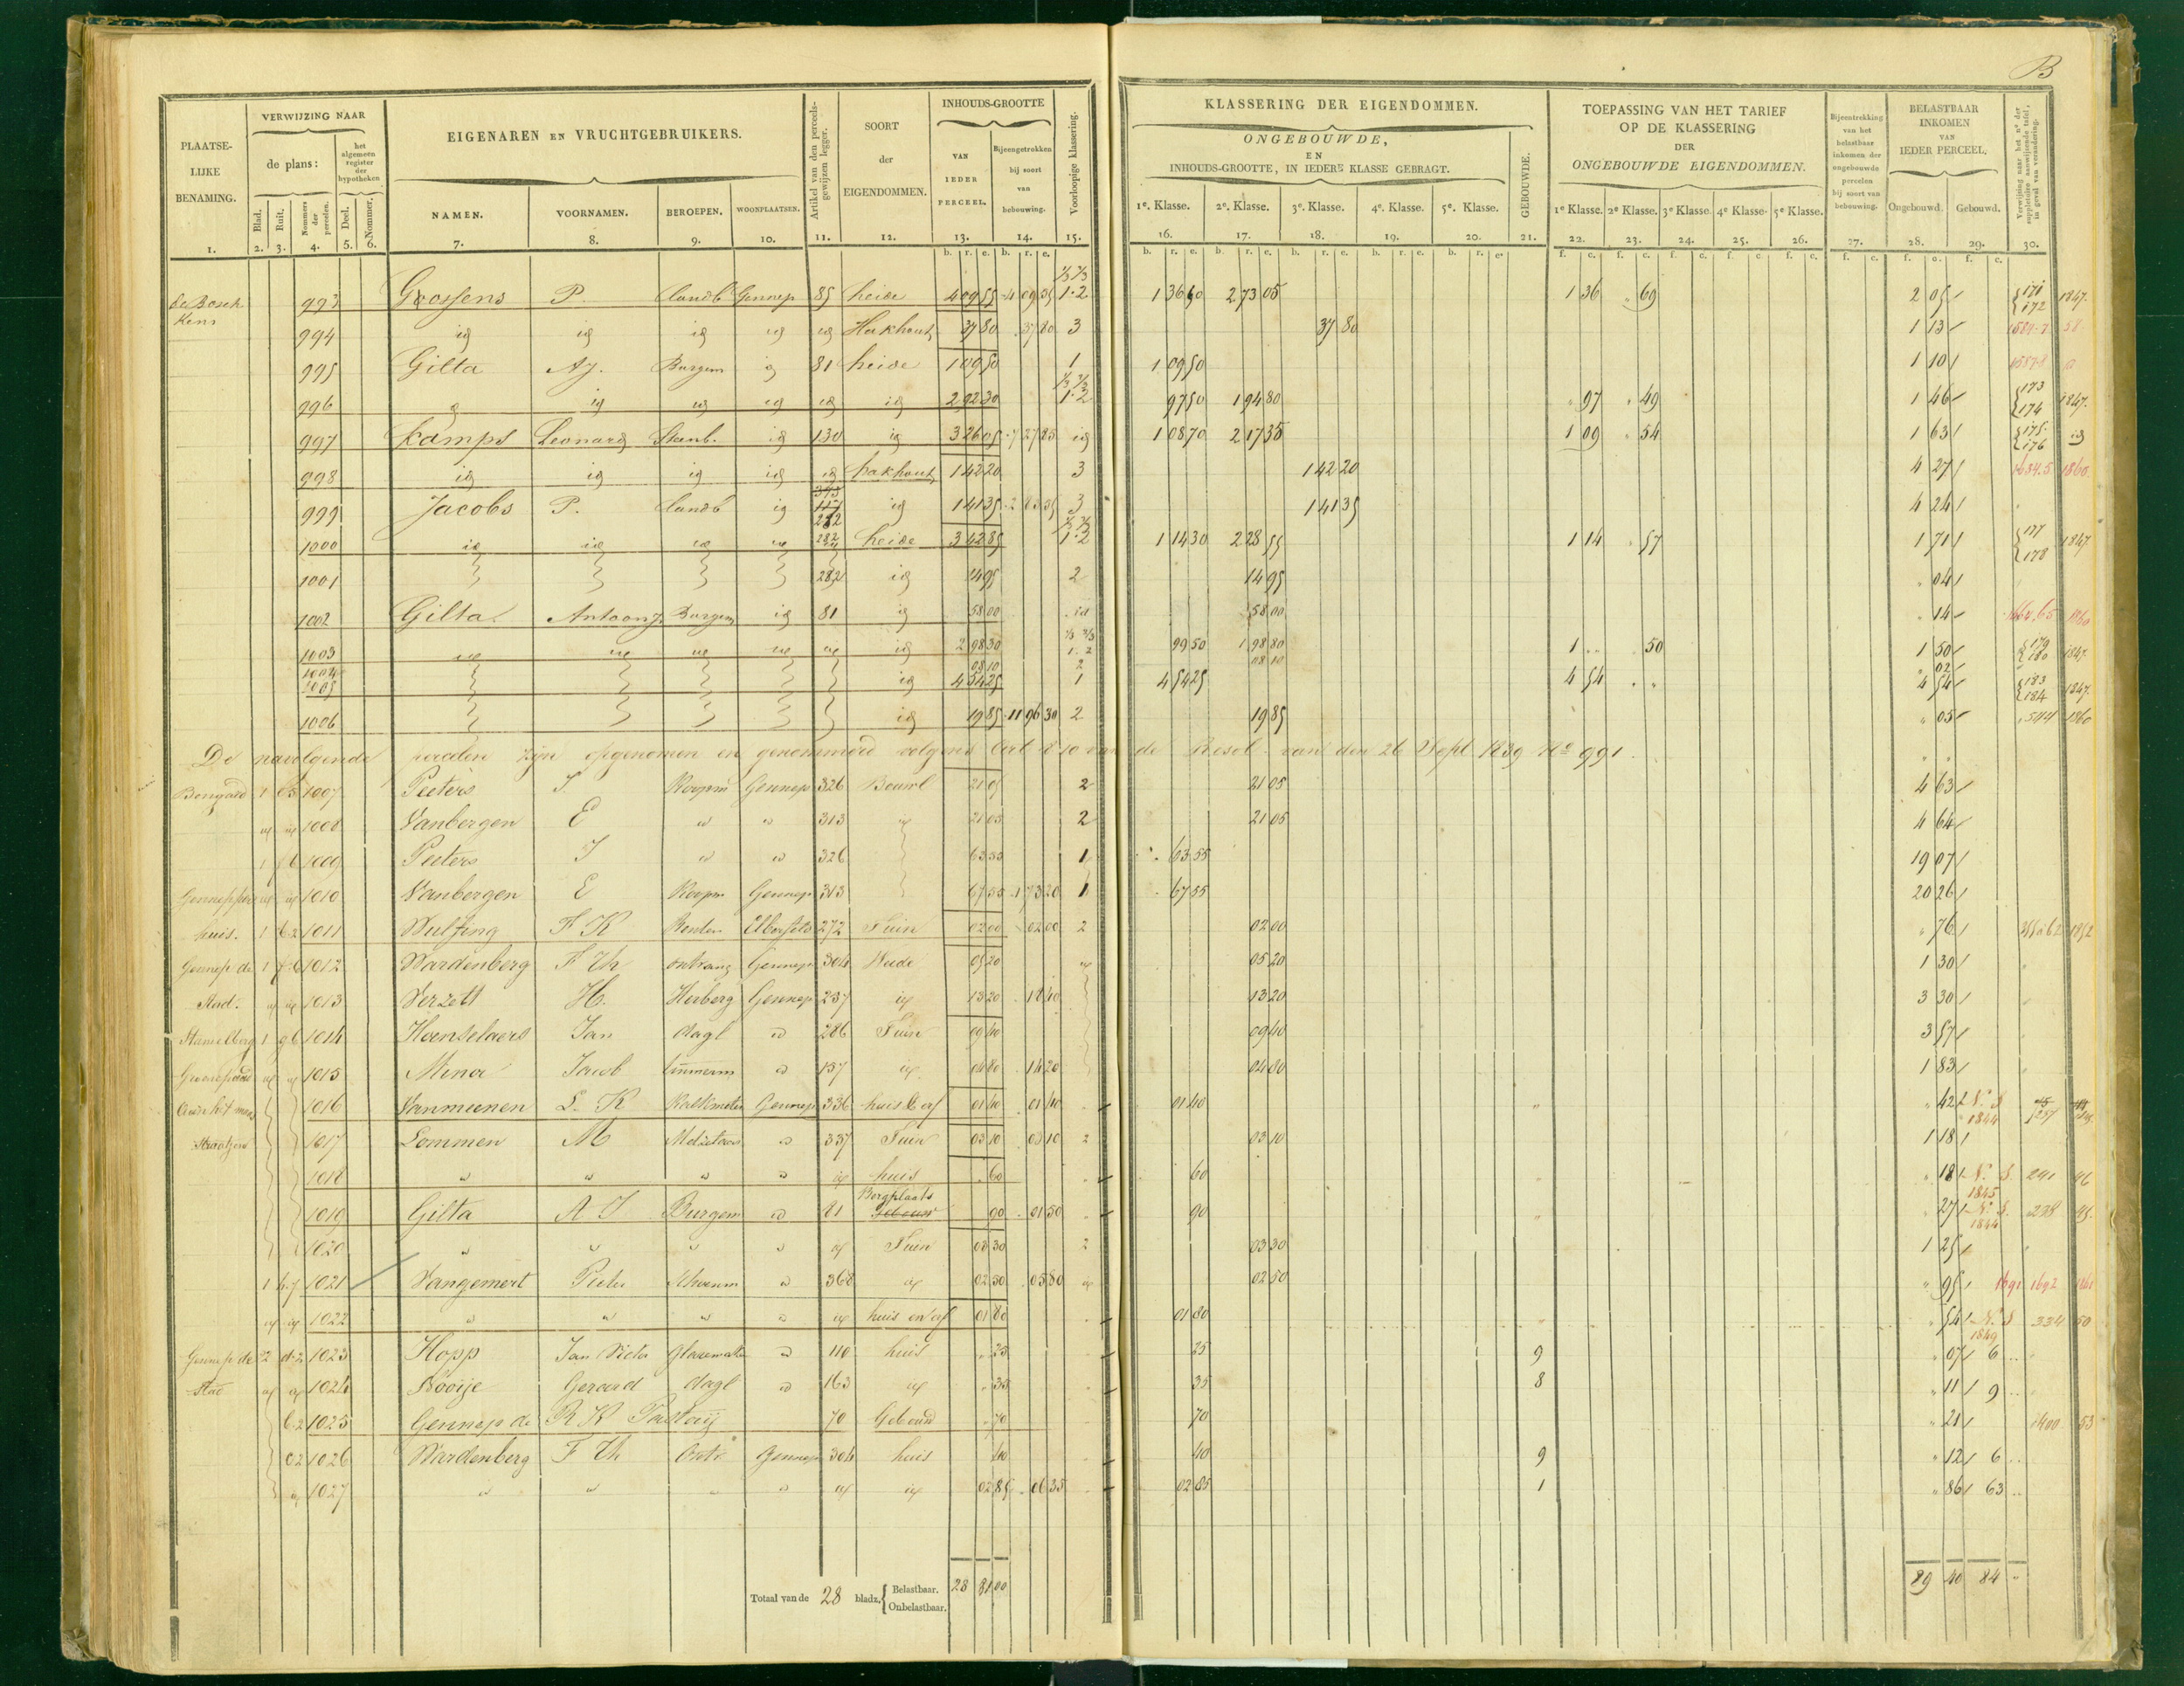 B
PLAATSELIJKE BENAMING. 1.
VERWIJZING NAAR
de plans:
het algemeen register der hypotheken
Blad. 2. Ruit. 3. Nommers der perceelen. 4. Deel. 5. Nommer. 6.
EIGENAREN EN VRUCHTGEBRUIKERS.
NAMEN. 7. VOORNAMEN. 8. BEROEPEN. 9. WOONPLAATSEN. 10.
Artikel van den perceelsgewijzen legger. 11.
SOORT der EIGENDOMMEN. 12.
INHOUDS-GROOTTE
VAN IEDER PERCEEL. 13.
Bijeengetrokken bij soort van bebouwing. 14.
Voorloopige klassering. 15.
KLASSERING DER EIGENDOMMEN.
ONGEBOUWDE,
EN
INHOUDS-GROOTTE, IN IEDERE KLASSE GEBRAGT.
1e. Klasse. 2e. Klasse. 3e. Klasse. 4e. Klasse. 5e. Klasse.
16. 17. 18. 19. 20.
GEBOUWDE. 21.
TOEPASSING VAN HET TARIEF
OP DE KLASSERING
DER
ONGEBOUWDE EIGENDOMMEN.
1e Klasse. 2e Klasse. 3e Klasse. 4e Klasse. 5e Klasse.
22. 23. 24. 25. 26.
Bijeentrekking van het belastbaar inkomen der ongebouwde perceelen bij soort van bebouwing. 27.
BELASTBAAR INKOMEN VAN IEDER PERCEEL.
Ongebouwd. 28. Gebouwd. 29.
Verwijzing naar het no. der suppletoire aanwijzende tafel, in geval van verandering. 30.
993 Goossens P. Landb Gennep 85 heide 4 09 55 4 09 55 1/3 2/3 1.2 1 36 50 2 73 05 1 36 " 69 2 05 171 172 1847.
994 id id id id id Hakhout 37 80 37 80 3 37 80 1 13
995 Gilta A.J. Burgem id 81 heide 1 09 50 1 1 09 50 1 10
996 id id id id id id 2 92 30 1/3 2/3 1.2 97 50 1 94 80 " 97 " 49 1 46 173 174 1847.
997 Kamps Leonard id 130 id 3 26 05 7 27 85 id 1 08 70 2 17 35 1 09 " 54 1 63 175 176 id
998 id id id id id hakhout 1 42 20 3 1 42 20 4 27 1860
999 Jacobs P. Landb id 282 id 1 41 35 2 83 55 3 1 41 35 4 24
1000 id id id id 282 heide 3 42 85 1/3 2/3 1.2 1 14 30 2 28 55 1 14 " 57 1 71 177 178 1847.
1001 282 id 14 95 2 14 95 " 04
1002 Gilta Antoon J. Burgem id 81 id 58 00 id 58 00 " 14 1860
1003 id 2 98 30 1/3 2/3 1.2 99 50 1 98 80 1 " 50 1 50 179 180 1847
1004 08 10 2 08 10 " 02
1005 id 4 54 25 1 4 54 25 4 54 " " 4 54 183 184 1847.
1006 id 19 85 11 96 30 2 19 85 " 05 544 1860
De navolgende perceelen zijn opgenomen en genommerd volgens Art 8 10 van de Resol. van den 26 Sept 1839 No 991.
Bongard 1 1007 Peeters J. Koopm Gennep 326 Bouwl 21 05 2 21 05 4 63
1008 Vanbergen E " " 313 id 21 05 2 21 05 4 64
1 1009 Peeters J " " 326 63 55 1 63 55 19 07
Genneperhuis. 1010 Vanbergen E Koopm Gennep 313 67 55 1 73 20 1 67 55 20 26
1 b2 1011 Wulfing F K Renten Elberfeld 272 Tuin 02 00 02 00 2 02 00 " 76 1852
Gennep de 1 1012 Wardenberg F Th ontvang Gennep 304 Weide 05 20 05 20 1 30
Stad. 1013 Verzett H. Herberg Gennep 237 id 13 20 18 40 13 20 3 30
Stamelberg 1 g6 1014 Hoenselaers Jan dagl " 286 Tuin 09 40 09 40 3 57
1015 Jacob timmerm " 137 id 04 80 14 20 04 80 1 83
1016 Vanmeenen L. K Gennep 336 huis & erf 01 40 01 40 01 40 " 42 1844
Straatjen 1017 Lommen M " 337 Tuin 03 10 03 10 2 03 10 1 18
1018 " " " " id huis 60 60 " 18 1845 291 46
1019 Gilta A J Burgem " 81 Bergplaats 90 01 50 90 " 27 1844 45
1020 " " " " id Tuin 03 30 2 03 30 1 25
1 1021 Vangemert Pieter " 368 id 02 50 05 80 id 02 50 " 95 1691 1692 1861
1022 " " " " id huis en erf 01 80 01 80 " 54 1849 334 50
Gennep de 2 d2 1023 Hopp Jan Victor Glazemaker " 110 huis 25 25 9 " 07 6
Stad 1024 Rooije Gerard dagl " 163 id 35 35 8 " 11 9
b2 1025 Gennep de R K Pastorij 70 Gebouw 70 70 " 21 1400 53
c2 1026 Wardenberg F Th Ontv Gennep 304 huis 40 40 9 " 12 6
1027 " " " " id id 02 85 06 35 02 85 1 " 86 63
Totaal van de 28 bladz. Belastbaar. 28 81 00 89 40 84 "
Onbelastbaar.